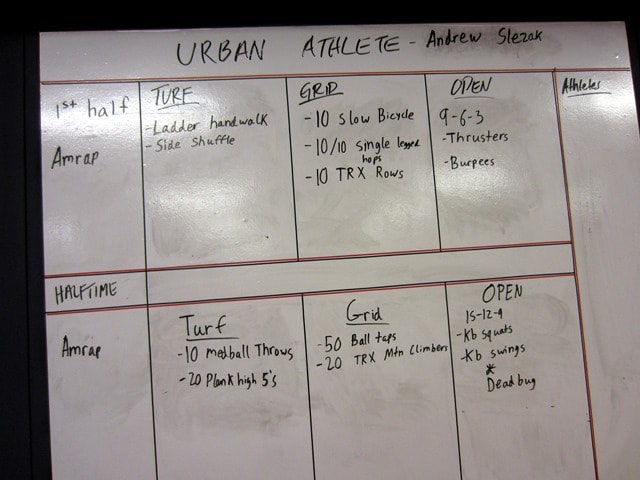 URBAN ATHLETE - Andrew Slezak
1st half
Amrap
TURF
-Ladder handwalk
-Side Shuffle
GRID
-10 slow Bicycle
-10/10 single legged
hops
-10 TRX Rows
OPEN
9-6-3
-Thrusters
-Burpees
Athletes
HALFTIME
Amrap
Turf
-10 medball Throws
-20 Plank high 5's
Grid
-50 Ball taps
-20 TRX Mtn Climbers
OPEN
15-12-9
-Kb squats
-Kb swings
*
Deadbug